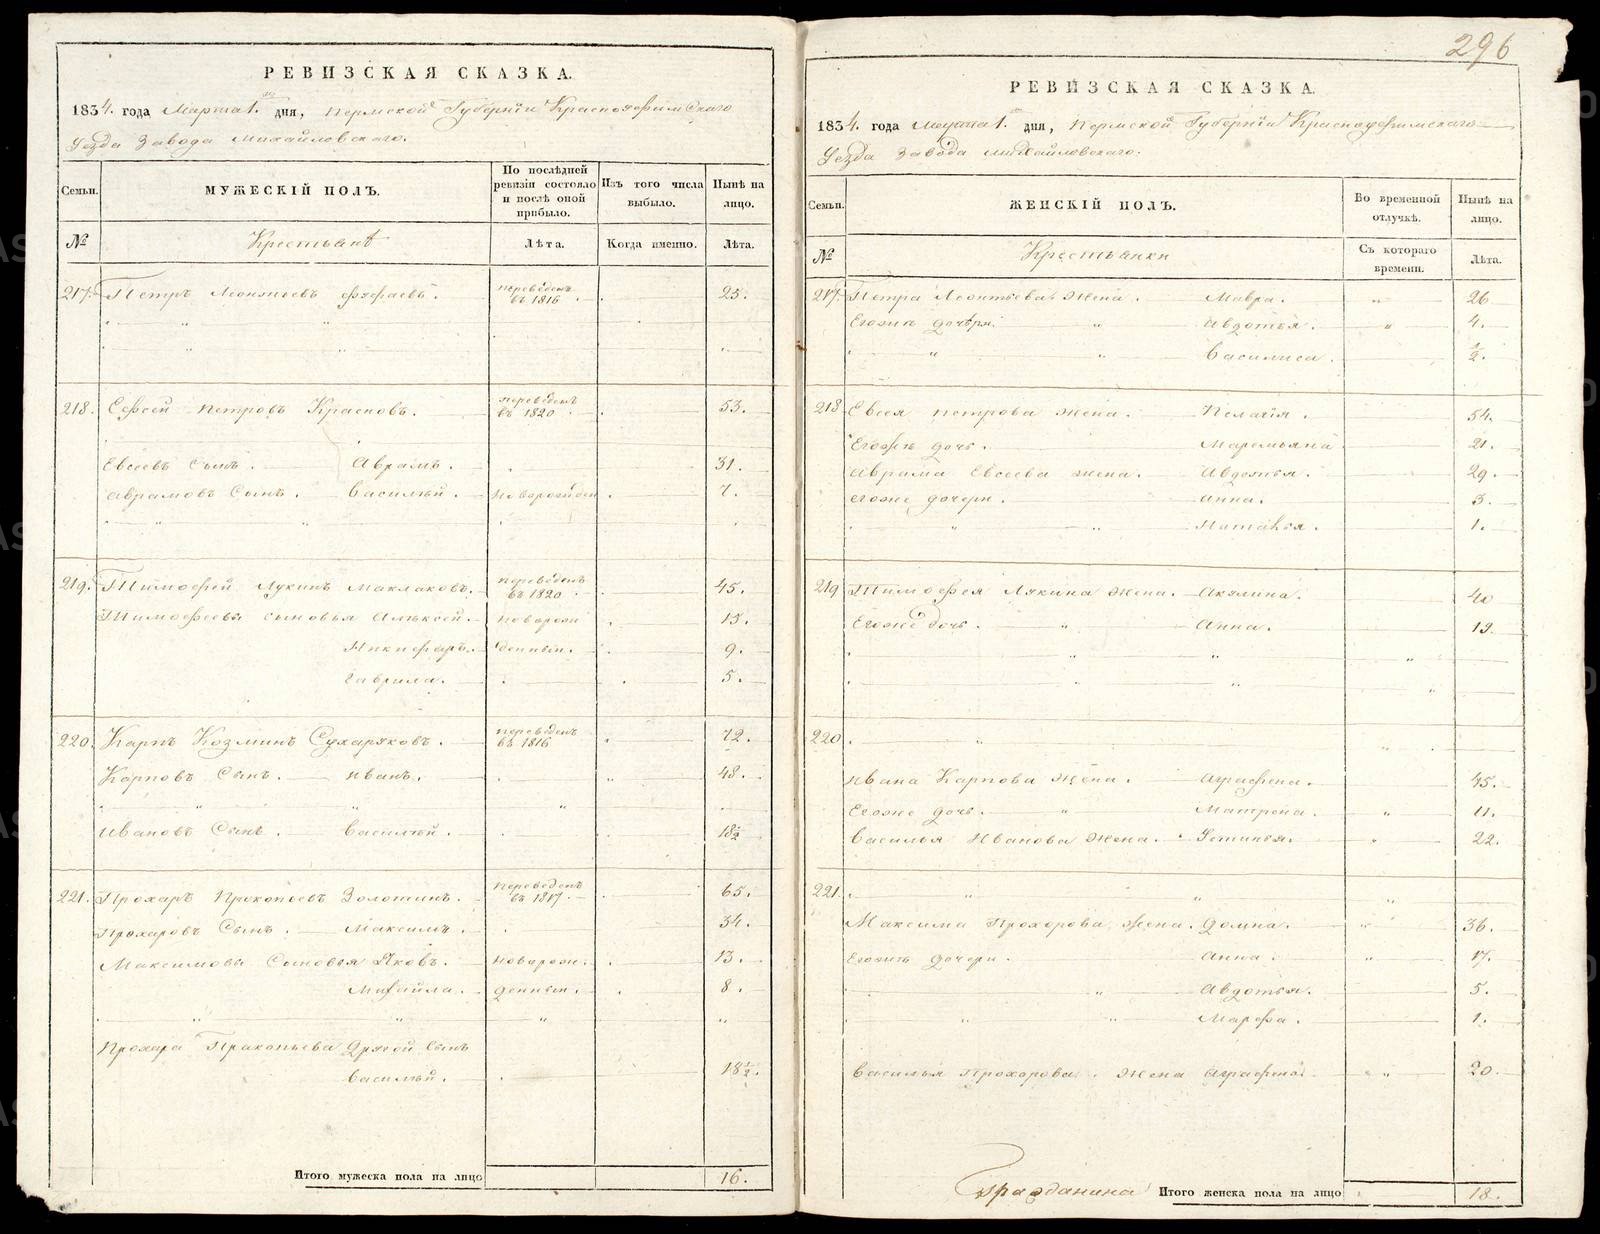 РЕВИЗСКАЯ СКАЗКА.
1834. года Марта 1. дня, Пермской Губернiи Красноуфимскаго
Уезда Завода Михайловскаго.
Семьи.
МУЖЕСКIЙ ПОЛЪ.
По послѣдней
ревизiи состояло
и послѣ оной
прибыло.
Изъ того числа
выбыло.
Нынѣ на
лицо.
№
Крестьянѣ
Лѣта.
Когда именно.
Лѣта.
217. Петръ Леонтьевъ переведенъ въ 1816 25.
218. Евсей Петровъ Красновъ. переведенъ въ 1820 53.
Евсеевъ сынъ. Аврамъ. 31.
Аврамовъ Сынъ. Василiй. новорожден 7.
219. Тимофей Лукинъ Маклаковъ. переведенъ въ 1820 45.
Тимофеевы сыновья Алексей. новорож 13.
Никифоръ. денныи. 9.
Гаврила. 5.
220. Карпъ Козминъ Сухаряковъ. переведенъ въ 1816 72.
Карповъ Сынъ. Иванъ. 48.
Ивановъ Сынъ. Василiй. 18½
221. Прохаръ Прокопьевъ Золотинъ. переведенъ въ 1817. 65.
Прохаровъ Сынъ. Максимъ. 34.
Максимовы Сыновья Яковъ. новорож. 13.
Михайла. денныи. 8.
Прохара Пракопьева Другой Сынъ
Василiй. 18½.
Итого мужеска пола на лицо 16.
296
РЕВИЗСКАЯ СКАЗКА.
1834. года Марта 1. дня, Пермской Губернiи Красноуфимскаго
Уезда Завода Михайловскаго.
Семьи.
ЖЕНСКIЙ ПОЛЪ.
Во временной
отлучкѣ.
Нынѣ на
лицо.
№
Крестьянки
Съ котораго
времени.
Лѣта.
217. Петра Леонтьева Жена. Мавра. 26
Егожъ дочѣри. Авдотья. 4.
Василиса. ½.
218 Евсея Петрова жена. Пелагiя. 54.
Егожъ дочь. Маремьяна 21.
Аврама Евсеева жена. Авдотья. 29.
Егоже дочери. Анна. 3.
Наталья. 1.
219 Тимофея Лукина Жена. Акулина. 40
Егоже дочь. Анна. 19.
220.
Ивана Карпова Жена. Аграфена. 45.
Егоже дочь. Матрена. 11.
Василья Иванова Жена. Устинья. 22.
221.
Максима Прохорова Жена. Домна. 36.
Егожъ дочери. Анна. 17.
Авдотья. 5.
Марфа. 1.
Василья Прохорова. Жена Аграфена. 20.
Гражданина Итого женска пола на лицо 18.